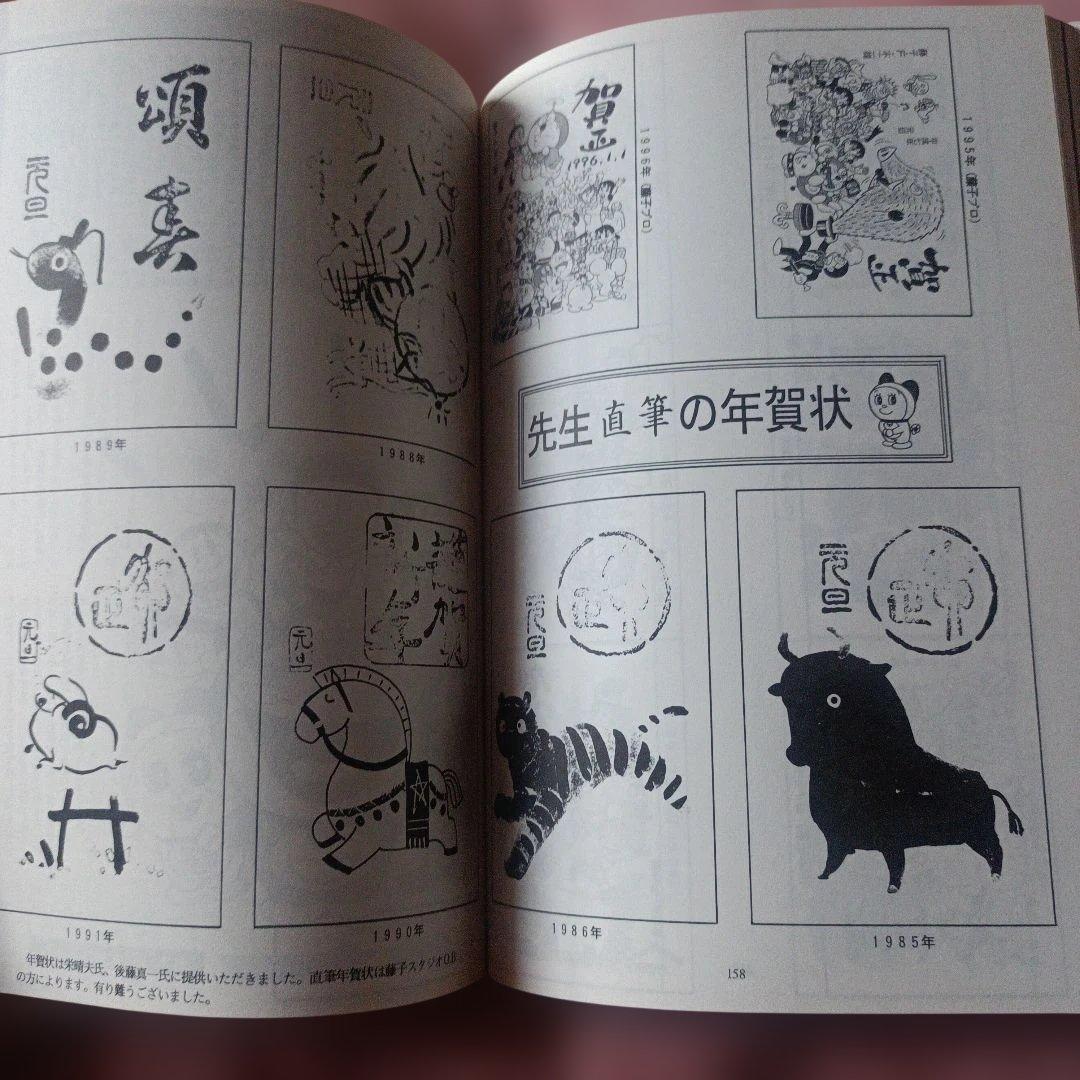 1995年(藤子プロ)
賀正
1996年(藤子プロ)
賀正
1996.1.1
先生直筆の年賀状
元旦
1985年
元旦
1986年
158
1988年
頌春
元旦
1989年
元旦
1990年
元旦
1991年
年賀状は栄晴夫氏、後藤真一氏に提供いただきました。直筆年賀状は藤子スタジオO.B
の方によります。有り難うございました。